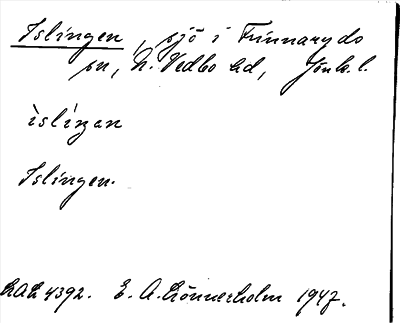 Islingen, sjö i Frinnaryds
sn, N. Vedbo hd, Jönk. l.
ìslíŋan
Islingen.
LAL 4392. E. A. Lönnerholm 1947.